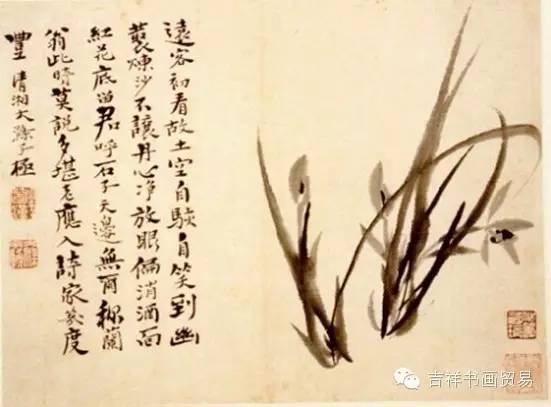 遠客初看故土空自駭自笑到幽
煉沙不讓丹心净放眼偏消酒面
紅花底留君呼石子天邊無稱蘭
翁此時莫說多堪老應入詩家幾度
豐 清湘大滌子極
吉祥书画贸易